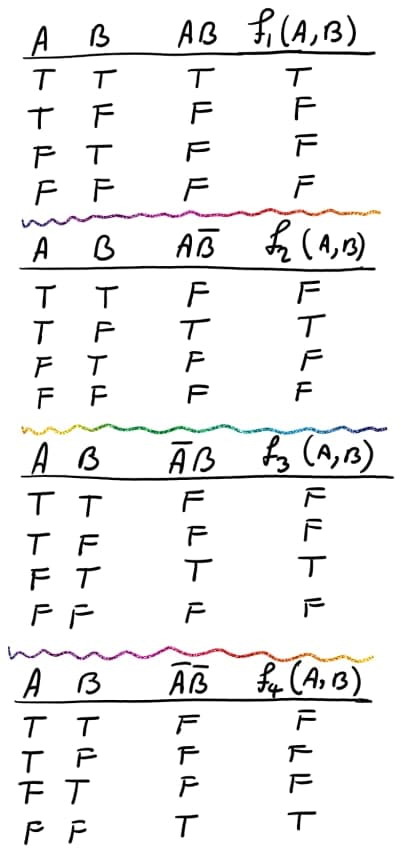 A B AB f₁(A,B)
T T T T
T F F F
F T F F
F F F F
A B AB̅ f₂(A,B)
T T F F
T F T T
F T F F
F F F F
A B A̅B f₃(A,B)
T T F F
T F F F
F T T T
F F F F
A B A̅B̅ f₄(A,B)
T T F F
T F F F
F T F F
F F T T